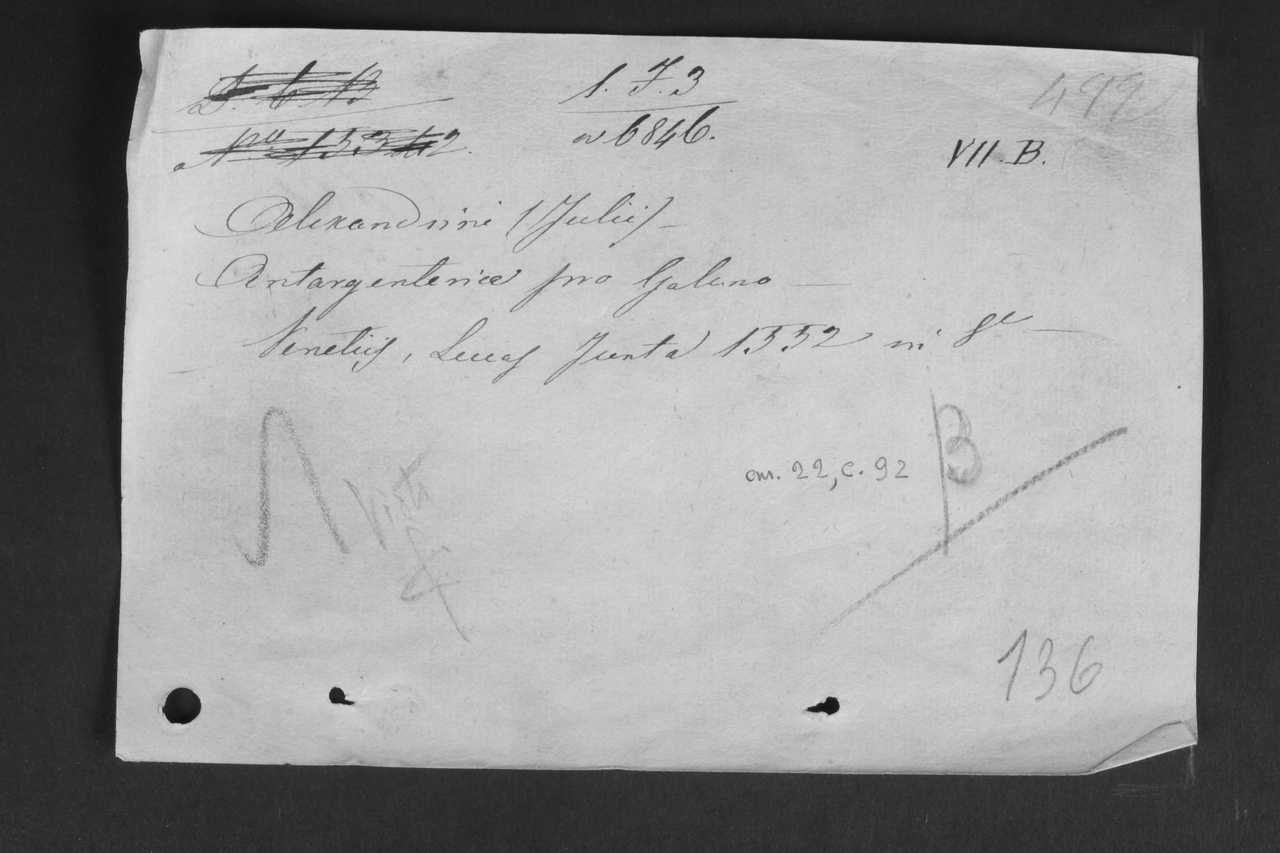 1. F. 3
499
6846.
VII. B.
Alexandrini (Julii) —
Antargenterica pro Galeno —
Venetiis, Lucas Junta 1552 in 8º —
om. 22, c. 92
B
Visto
136